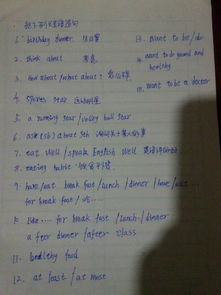 1. birthday dinner 生日宴
2. think about 考虑
3. How about / what about : 怎么样
4. sports star 运动明星
5. a running star / volley ball star
6. ask (sb) about sth 询问关于某人的事
7. eat well / speak English well 英语讲得好
8. eating habit 饮食习惯
9. have / eat break fast / lunch / dinner / have / eat ...
for break fast / 吃...
10. like ... for break fast / lunch / dinner
after dinner / after class
11. healthy food
12. at least / at most
13. want to be / do
14. want to be good and healthy
15. want to be a doctor